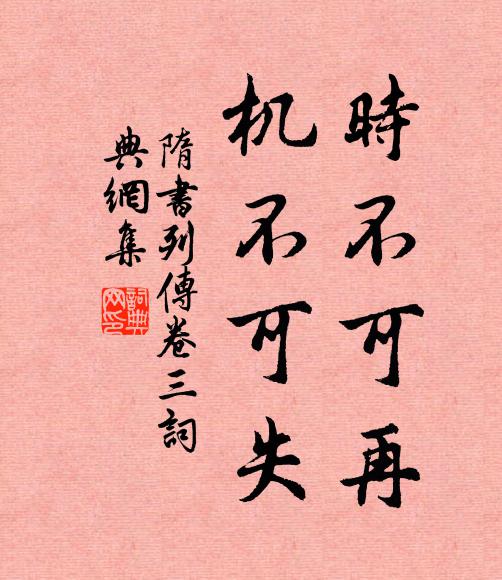 時不可再
机不可失
隋書列傳卷三詞
典網集
詞典
网印